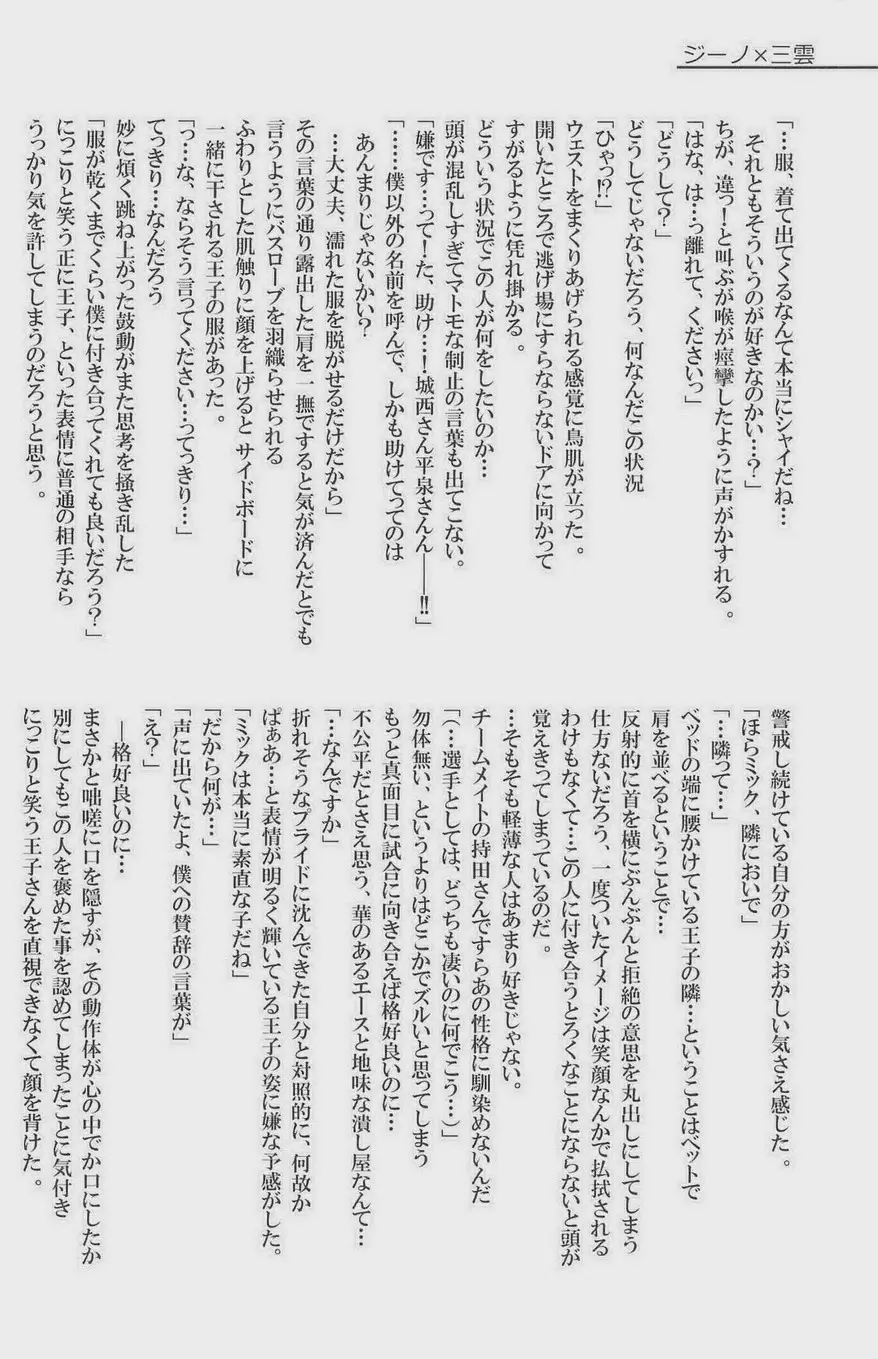 ジーノ×三雲
「…服、着て出てくるなんて本当にシャイだね…
それともそういうのが好きなのかい…？」
ちが、違っ！と叫ぶが喉が痙攣したように声がかすれる。
「はな、は…っ離れて、くださいっ」
「どうして？」
どうしてじゃないだろう、何なんだこの状況
「ひゃっ!?」
ウェストをまくりあげられる感覚に鳥肌が立った。
開いたところで逃げ場にすらならないドアに向かって
すがるように凭れ掛かる。
どういう状況でこの人が何をしたいのか…
頭が混乱しすぎてマトモな制止の言葉も出てこない。
「嫌です…って！た、助け…！城西さん平泉さんん――!!」
「……僕以外の名前を呼んで、しかも助けてってのは
あんまりじゃないかい？
…大丈夫、濡れた服を脱がせるだけだから」
その言葉の通り露出した肩を一撫ですると気が済んだとでも
言うようにバスローブを羽織らせられる
ふわりとした肌触りに顔を上げると サイドボードに
一緒に干される王子の服があった。
「っ…な、ならそう言ってください…ってっきり…」
てっきり…なんだろう
妙に煩く跳ね上がった鼓動がまた思考を掻き乱した
「服が乾くまでくらい僕に付き合ってくれても良いだろう？」
にっこりと笑う正に王子、といった表情に普通の相手なら
うっかり気を許してしまうのだろうと思う。
警戒し続けている自分の方がおかしい気さえ感じた。
「ほらミック、隣においで」
「…隣って…」
ベッドの端に腰かけている王子の隣…ということはベットで
肩を並べるということで…
反射的に首を横にぶんぶんと拒絶の意思を丸出しにしてしまう
仕方ないだろう、一度ついたイメージは笑顔なんかで払拭される
わけもなくて…この人に付き合うとろくなことにならないと頭が
覚えきってしまっているのだ。
…そもそも軽薄な人はあまり好きじゃない。
チームメイトの持田さんですらあの性格に馴染めないんだ
「（…選手としては、どっちも凄いのに何でこう…）」
勿体無い、というよりはどこかでズルいと思ってしまう
もっと真面目に試合に向き合えば格好良いのに…
不公平だとさえ思う、華のあるエースと地味な潰し屋なんて…
「…なんですか」
折れそうなプライドに沈んできた自分と対照的に、何故か
ぱぁあ…と表情が明るく輝いている王子の姿に嫌な予感がした。
「ミックは本当に素直な子だね」
「だから何が…」
「声に出ていたよ、僕への賛辞の言葉が」
「え？」
―格好良いのに…
まさかと咄嗟に口を隠すが、その動作体が心の中でか口にしたか
別にしてもこの人を褒めた事を認めてしまったことに気付き
にっこりと笑う王子さんを直視できなくて顔を背けた。